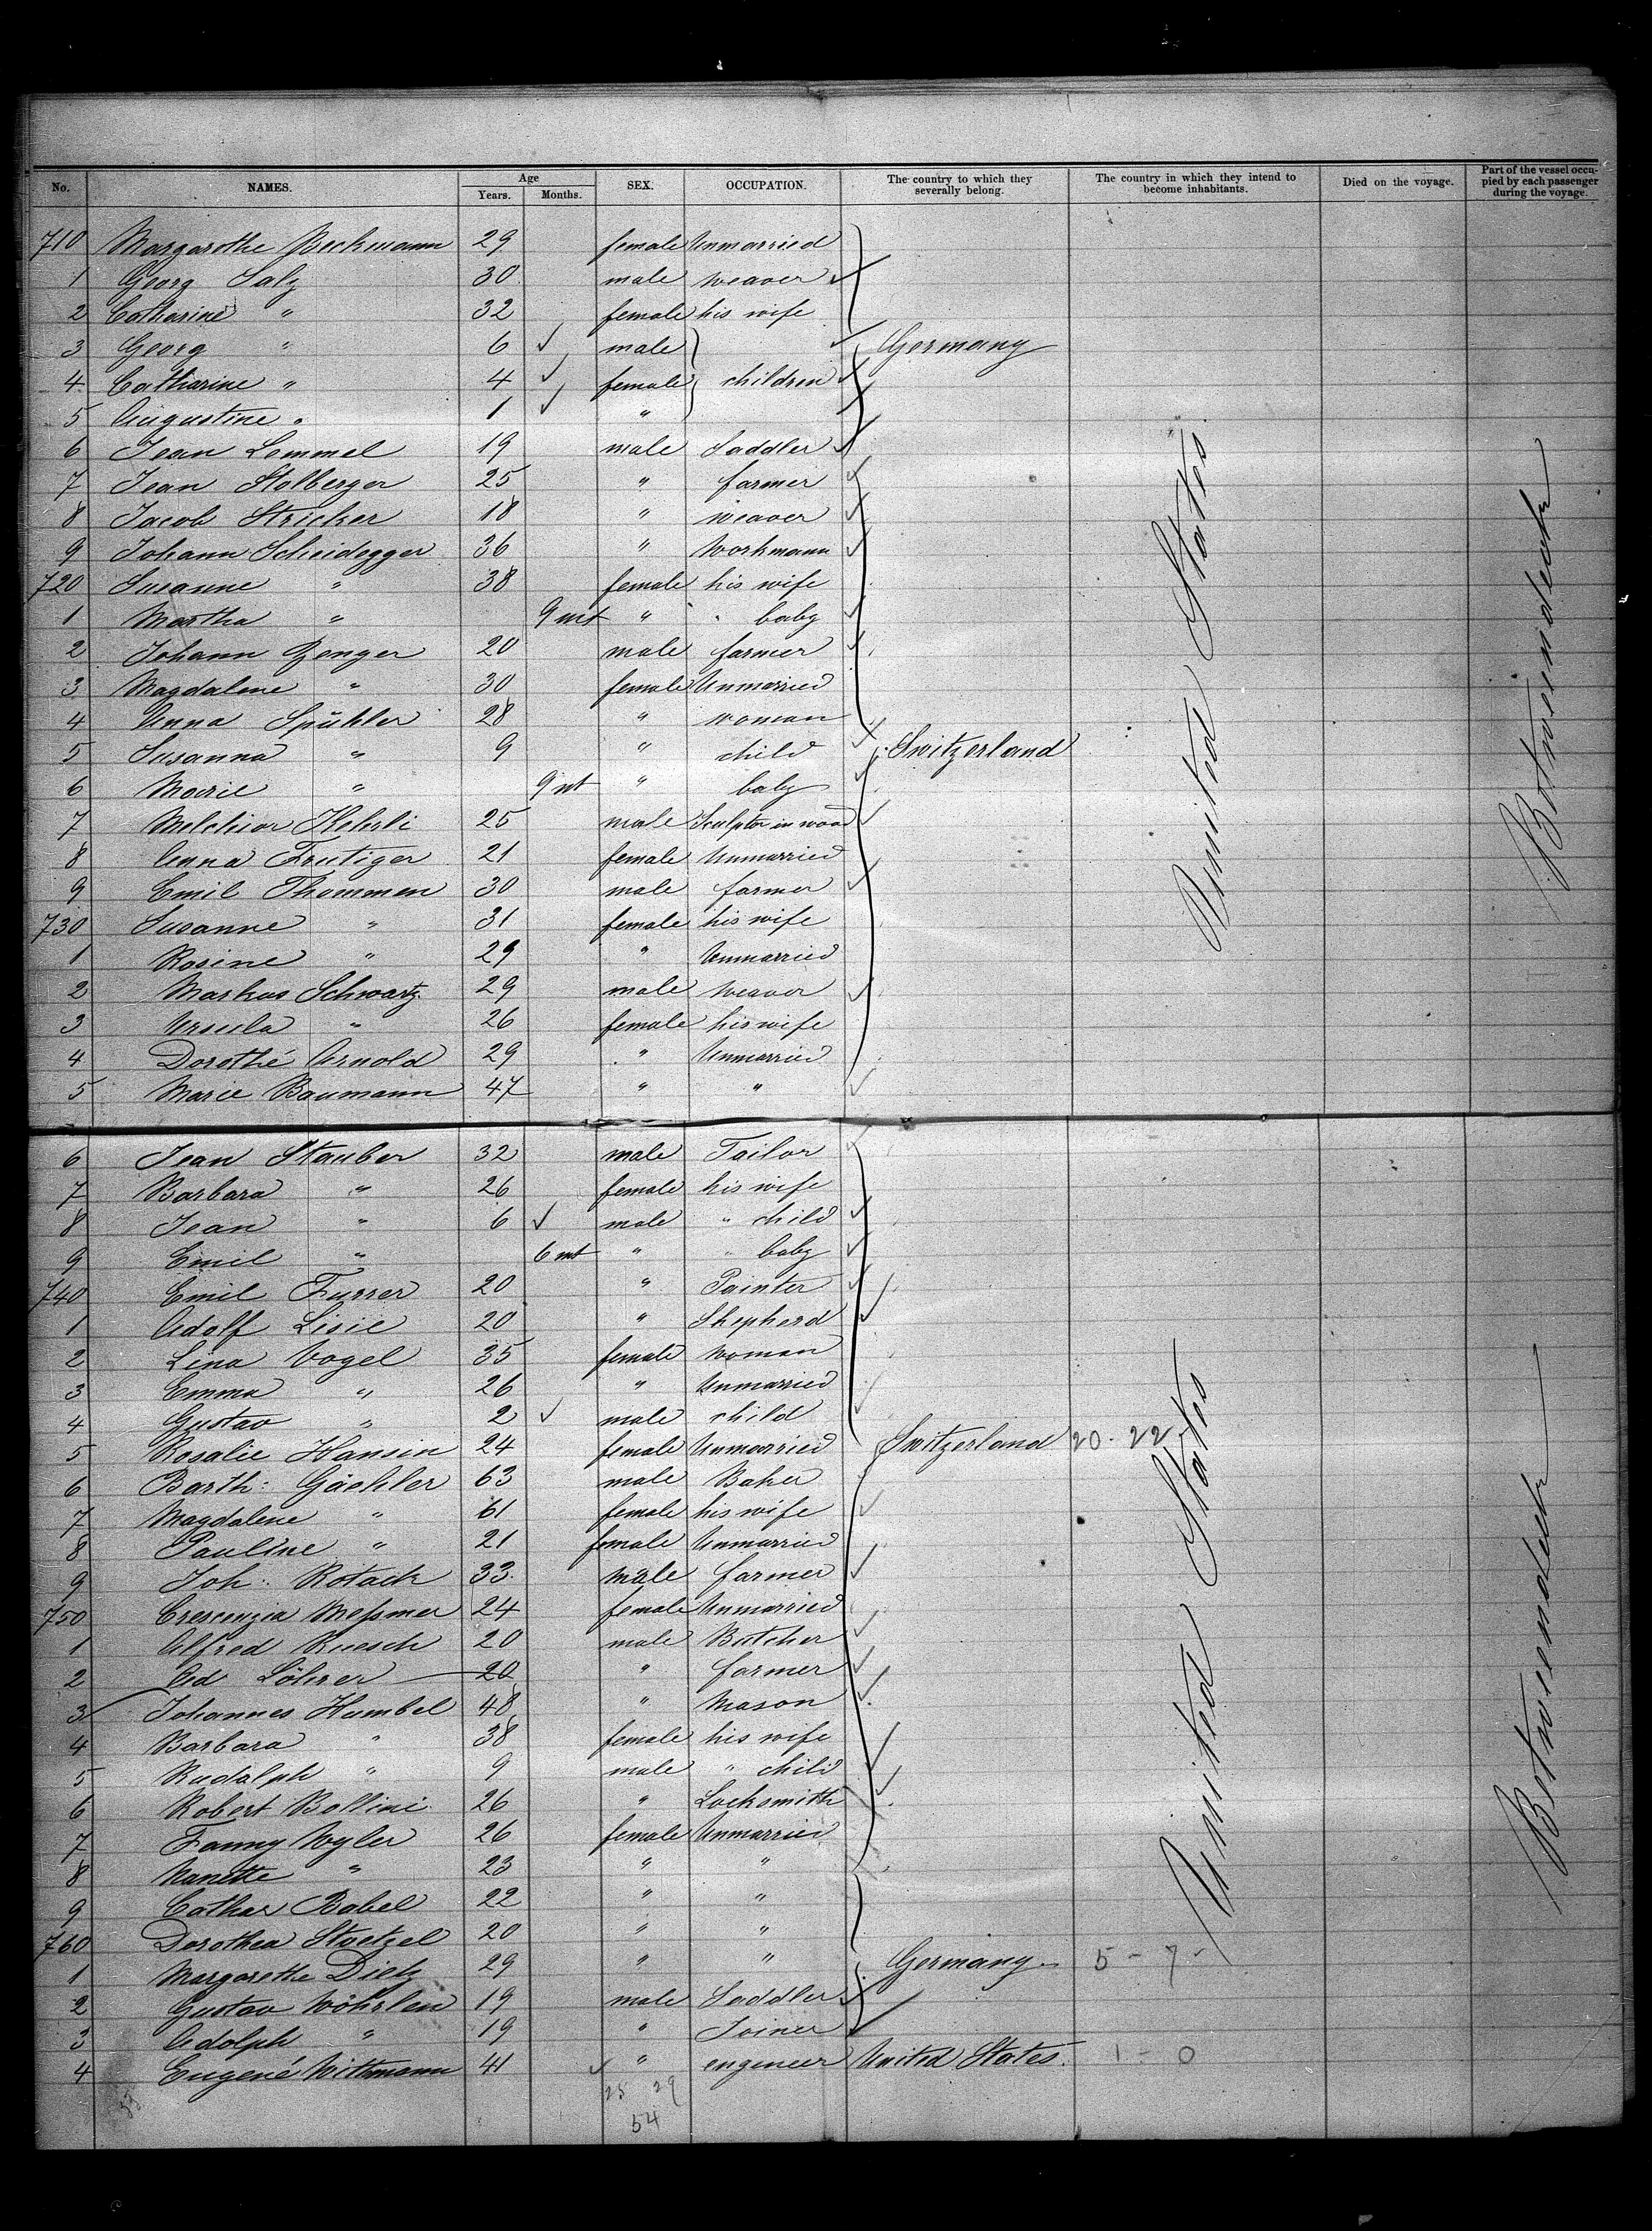 No. NAMES. Age Years. Months. SEX. OCCUPATION. The country to which they severally belong. The country in which they intend to become inhabitants. Died on the voyage. Part of the vessel occupied by each passenger during the voyage.
710 Margarethe Beckmann 29 female Unmarried
1 Georg Salz 30 male weaver
2 Catharine " 32 female his wife
3 Georg " 6 male Germany
4 Catharine " 4 female children
5 Augustine " 1 "
6 Jean Lemmel 19 male Saddler
7 Jean Stolberger 25 " farmer
8 Jacob Stricker 18 " weaver
9 Johann Scheidegger 36 " Workmann
720 Susanne " 38 female his wife
1 Martha " 9 mt " " baby
2 Johann Zenger 20 male farmer
3 Magdalene " 30 female Unmarried
4 Anna Spühler 28 " woman
5 Susanna " 9 " child Switzerland
6 Marie " 9 mt " baby
7 Melchior Kehrli 25 male Sculptor in wood
8 Anna Frutiger 21 female Unmarried
9 Emil Thommen 30 male farmer
730 Susanne " 31 female his wife
1 Rosine " 29 " Unmarried
2 Markus Schwartz 29 male Weaver
3 Ursula " 26 female his wife
4 Dorothé Arnold 29 " Unmarried
5 Marie Baumann 47 " "
United States
Betweendeck
6 Jean Stauber 32 male Tailor
7 Barbara " 26 female his wife
8 Jean " 6 male " child
9 Emil " 6 mt " " baby
740 Emil Furrer 20 " Painter
1 Adolf Lisie 20 " Shepherd
2 Lina Vogel 35 female Woman
3 Emma " 26 " Unmarried
4 Gustav " 2 male child
5 Rosalie Hansin 24 female Unmarried Switzerland 20 - 22 -
6 Barth: Gächler 63 male Baker
7 Magdalene " 61 female his wife
8 Pauline " 21 female Unmarried
9 Joh: Rotach 33 male farmer
750 Crescenzia Meßmer 24 female Unmarried
1 Alfred Ruesch 20 male Butcher
2 Ad Löhrer 20 " farmer
3 Johannes Humbel 48 " Mason
4 Barbara " 38 female his wife
5 Rudolph " 9 male " child
6 Robert Bollini 26 " Locksmith
7 Fanny Wyler 26 female Unmarried
8 Nanette " 23 " "
9 Cathar Babel 22 " "
760 Dorothea Stoetzel 20 " "
1 Margarethe Dietz 29 " " Germany 5 - 7 -
2 Gustav Wöhrlen 19 male Saddler
3 Adolph " 19 " Joiner
4 Eugené Wittmann 41 " engeneer United States. 1 - 0
United States
Betweendeck
25 29
54